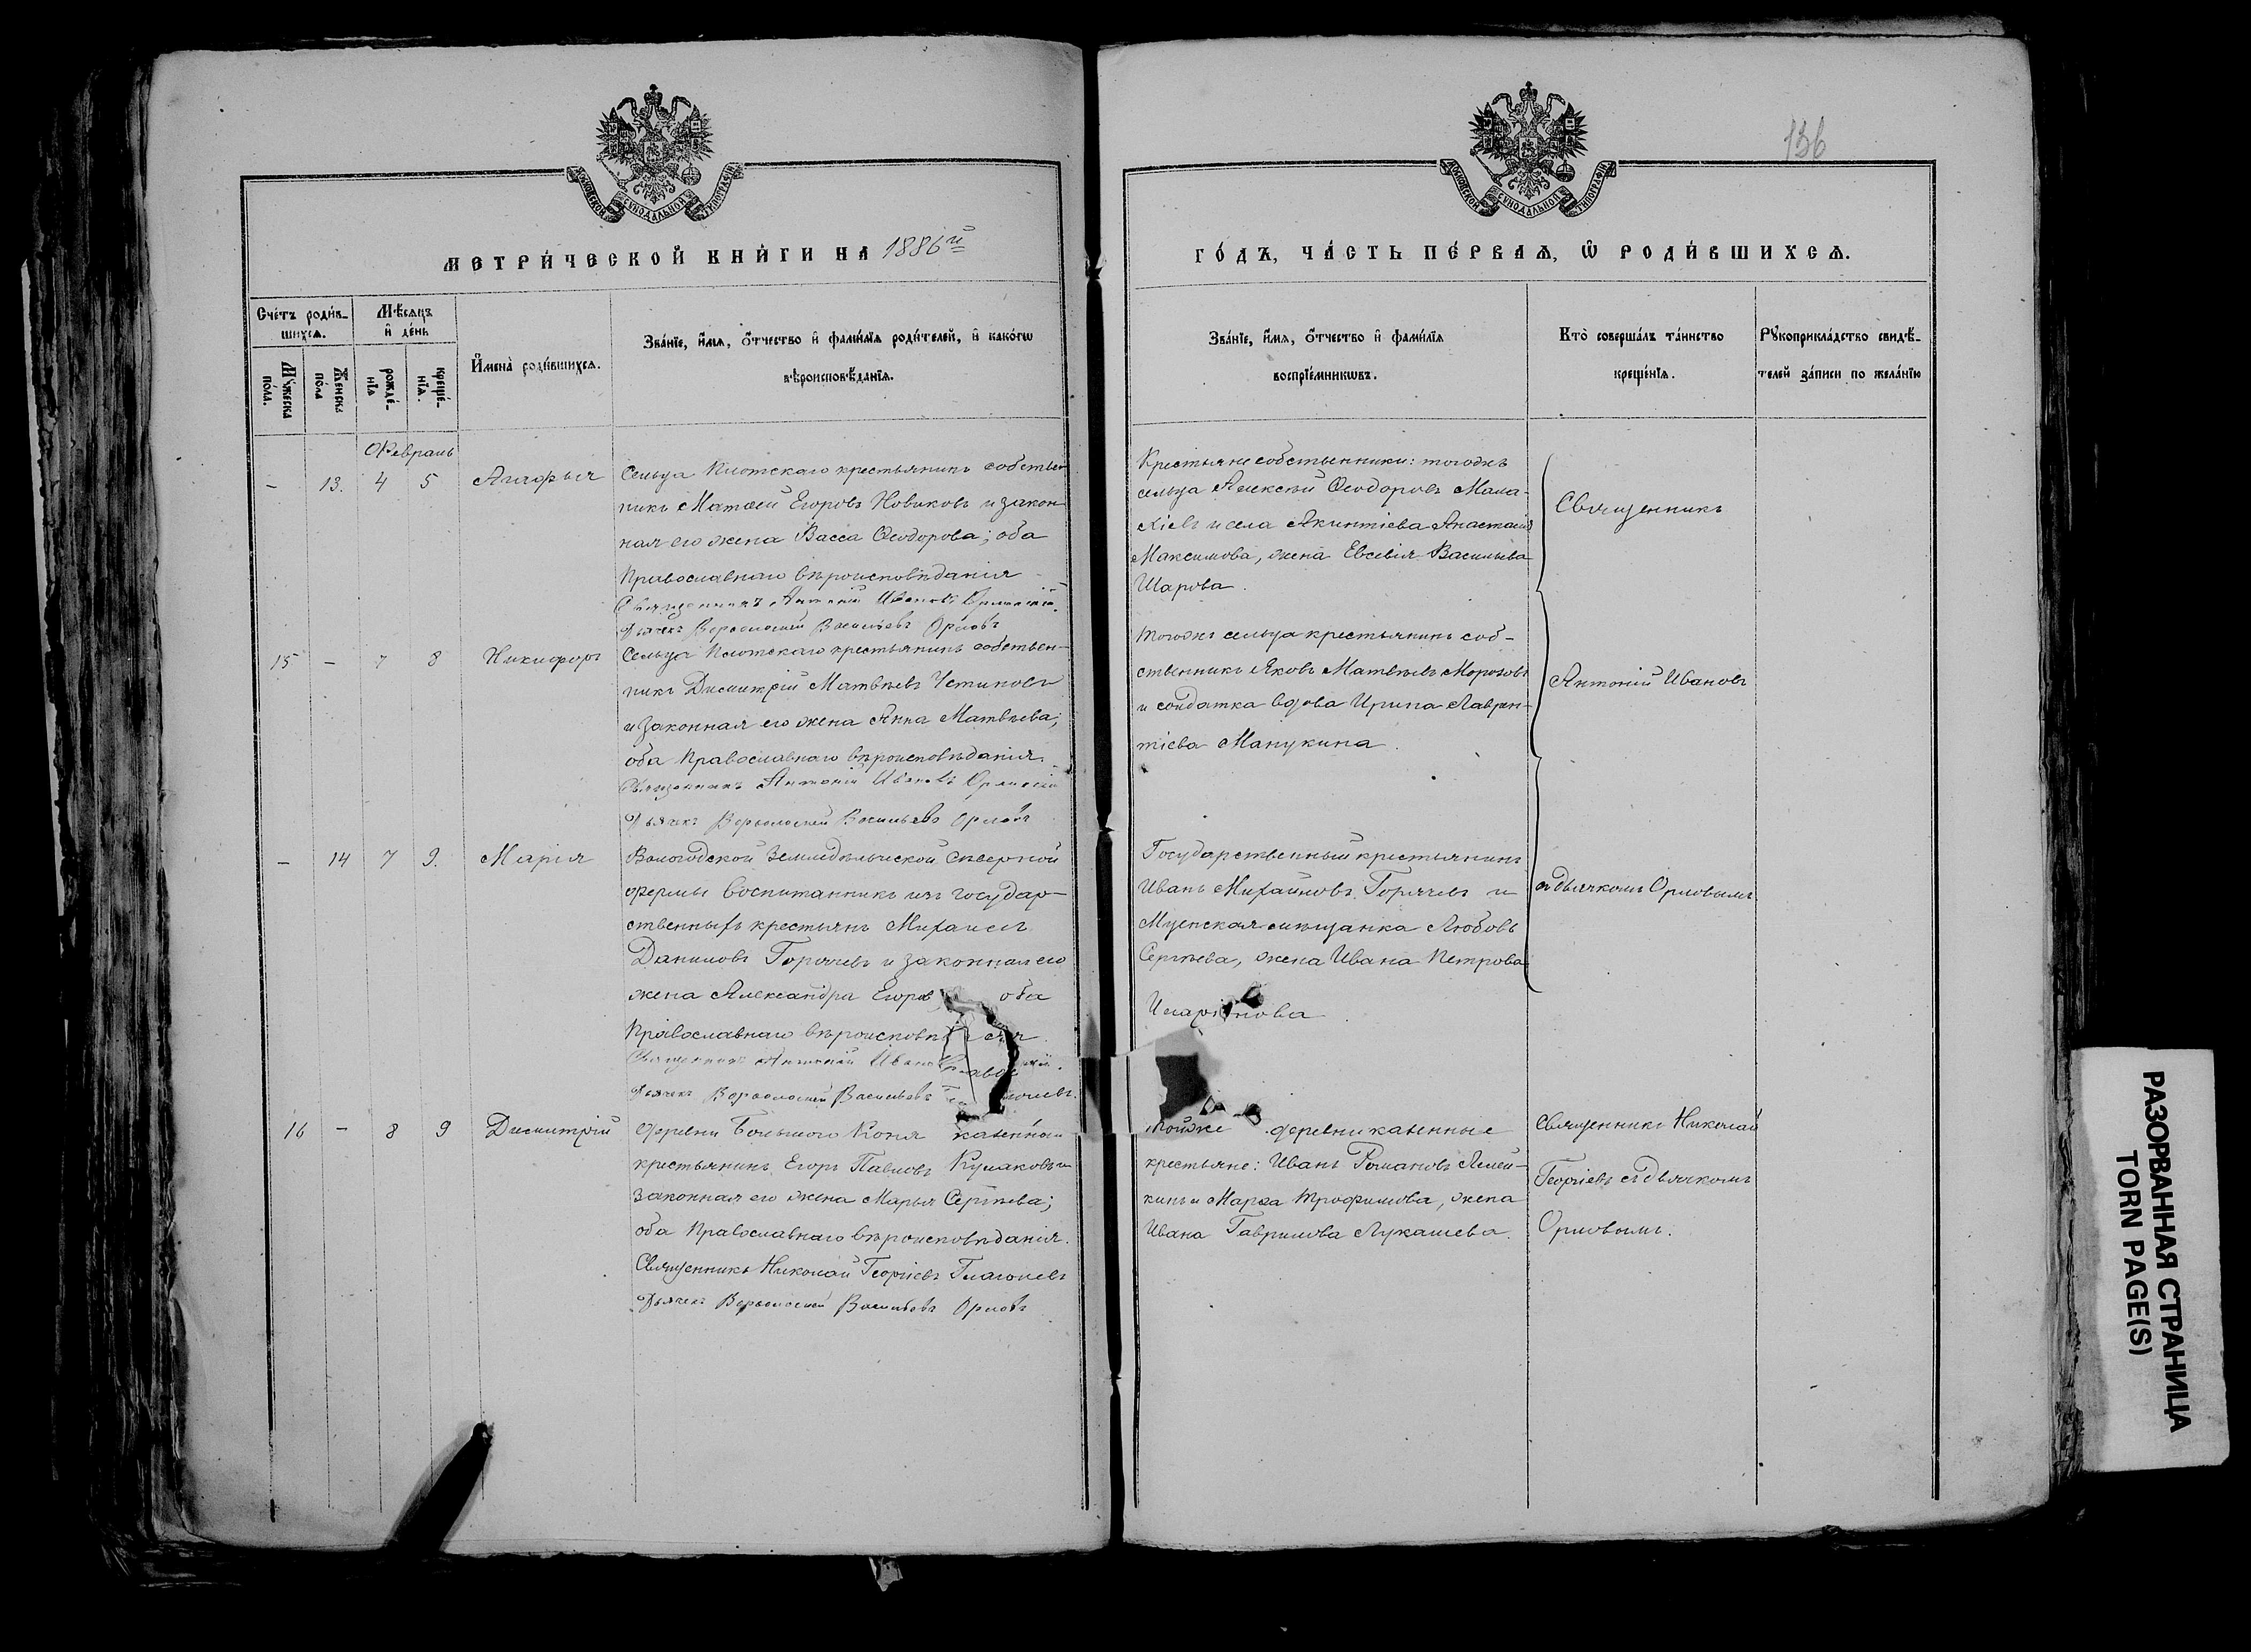 МОСКОВСКОЙ СѴНОДАЛЬНОЙ ТИПОГРАФІИ
МЕТРИ́ЧЕСКОЙ КНИ́ГИ НА 1886й
Сче́тъ роди́в-
шихсѧ.
Мѣ́сѧцъ
и҆ де́нь
Му́жеска
по́ла.
Же́нска
по́ла
рожде́-
нїѧ
креще́-
нїѧ.
И҆мена̀ роди́вшихсѧ.
Зва́нїе, и҆́мѧ, ѻ҆́тчество и҆ фами́лїѧ роди́телей, и҆ како́гѡ
вѣроисповѣ́данїѧ.
Февраль
- 13. 4 5 Агафья
Сельца Плотскаго крестьянинъ собствен
никъ Матѳей Егоровъ Новиковъ и закон
ная его жена Васса Ѳеодорова; оба
Православнаго вѣроисповѣданія
Священникъ Антоній Ивановъ
Дьячекъ Варѳоломей Васильевъ Орловъ
15 - 7 8 Никифоръ
Сельца Плотскаго крестьянинъ собствен-
никъ Димитрій Матвѣевъ Устиновъ
и законная его жена Анна Матвѣева;
оба Православнаго вѣроисповѣданія.
Священникъ Антоній Ивановъ
Дьячекъ Варѳоломей Васильевъ Орловъ
- 14 7 9. Марія
Вологодской Земледѣльческой Сѣверной
фермы Воспитанникъ изъ государ-
ственныхъ крестьянъ Михаилъ
Даниловъ Горячевъ и законная его
жена Александра Егоров оба
Православнаго вѣроисповѣ
Священникъ Антоній Иван
Дьячекъ Варѳоломей Васильевъ
16 - 8 9 Димитрій
деревни Большого Коня казенный
крестьянинъ Егоръ Павловъ Кулаковъ и
законная его жена Марья Сергѣева;
оба Православнаго вѣроисповѣданія.
Священникъ Николай Георгіевъ Глаголевъ
Дьячекъ Варѳоломей Васильевъ Орловъ
136
МОСКОВСКОЙ СѴНОДАЛЬНОЙ ТИПОГРАФІИ
ГО́ДЪ, ЧА́СТЬ ПЕ́РВАѦ, Ѡ҆ РОДИ́ВШИХСѦ.
Зва́нїе, и҆́мѧ, ѻ҆́тчество и҆ фами́лїѧ
воспрїе́мникѡвъ.
Кто̀ соверша́лъ та́инство
креще́нїѧ.
Рꙋкоприкла́дство свидѣ́-
телей за́писи по жела́нїю
Крестьяне собственники: тогожъ
сельца Алексѣй Ѳеодоровъ Мала-
хіевъ и села Акинтіева Анастасія
Максимова, жена Евсевія Васильева
Шарова.
Тогожъ сельца крестьянинъ соб-
ственникъ Яковъ Матвѣевъ Морозовъ
и солдатка вдова Ирина Лаврен-
тіева Манукина.
Государственный крестьянинъ
Иванъ Михайловъ Горячевъ и
Мценская мѣщанка Любовь
Сергѣева, жена Ивана Петрова
Иларіонова
Тойже деревни казенные
крестьяне: Иванъ Романовъ Алей-
кинъ и Марѳа Трофимова, жена
Ивана Гаврилова Лукашева.
Священникъ
Антоній Ивановъ
съ дьячкомъ Орловымъ
Священникъ Николай
Георгіевъ съ дьячкомъ
Орловымъ.
РАЗОРВАННАЯ СТРАНИЦА
TORN PAGE(S)